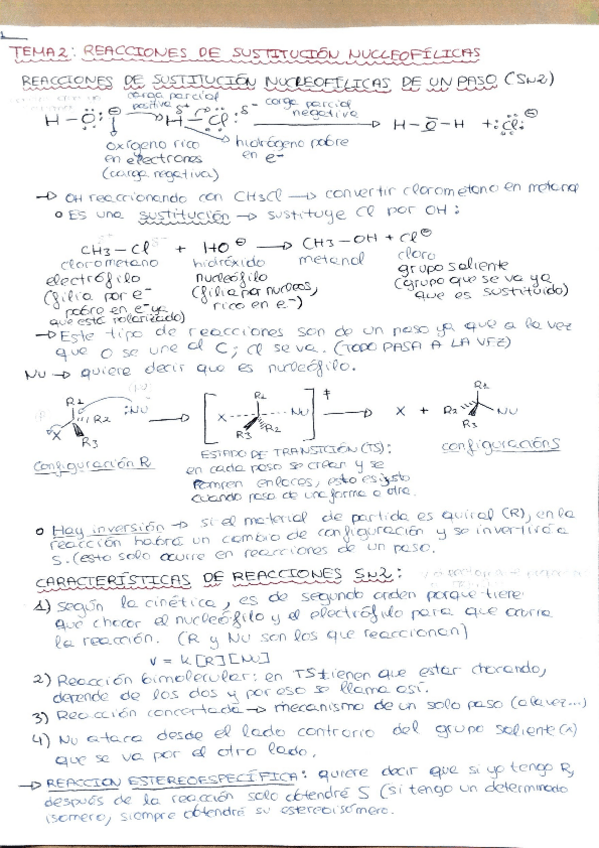 TEMA 2: REACCIONES DE SUSTITUCIÓN NUCLEOFÍLICAS
REACCIONES DE SUSTITUCIÓN NUCLEOFÍLICAS DE UN PASO (SN2)
carga parcial positiva δ+ δ- carga parcial negativa
H-O: ⊖ H-Cl: → H-O-H + :Cl: ⊖
oxígeno rico en electrones (carga negativa)
hidrógeno pobre en e-
→ OH reaccionando con CH3Cl → convertir clorometano en metanol
o Es una sustitución → sustituye Cl por OH:
CH3-Cl + HO⊖ → CH3-OH + Cl⊖
clorometano hidróxido metanol cloro
electrófilo nucleófilo grupo saliente
(filia por e- (filia por nucleos, (grupo que se va ya
pobre en e- ya rico en e-) que es sustituido)
que está polarizado)
→ Este tipo de reacciones son de un paso ya que a la vez
que O se une al C; Cl se va. (TODO PASA A LA VEZ)
NU → quiere decir que es nucleófilo.
R1 :NU R1 ‡ R1
X R2 → [X---- ----NU] → X + R2 NU
R3 R3 R2 R3
configuración R
ESTADO DE TRANSICIÓN (TS):
configuración S
en cada paso se crean y se
rompen enlaces, esto es justo
cuando pasa de una forma a otra.
o Hay inversión → si el material de partida es quiral (R), en la
reacción habrá un cambio de configuración y se invertirá a
S. (esto solo ocurre en reacciones de un paso.
CARACTERÍSTICAS DE REACCIONES SN2:
1) Según la cinética, es de segundo orden porque tiene
que chocar el nucleófilo y el electrófilo para que ocurra
la reacción. (R y Nu son los que reaccionan)
v = k [R] [Nu]
2) Reacción bimolecular: en TS tienen que estar chocando,
depende de los dos y por eso se llama así.
3) Reacción concertada → mecanismo de un solo paso (a la vez...)
4) Nu ataca desde el lado contrario del grupo saliente (x)
que se va por el otro lado.
→ REACCION ESTEREOESPECÍFICA: quiere decir que si yo tengo R,
después de la reacción solo obtendré S (si tengo un determinado
isomero, siempre obtendré su estereoisómero.